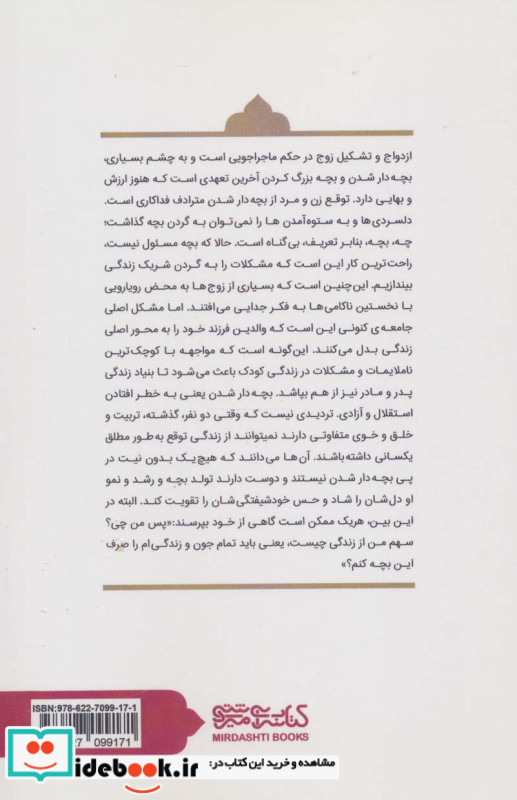 ازدواج و تشکیل زوج در حکم ماجراجویی است و به چشم بسیاری،
بچه‌دار شدن و بچه بزرگ کردن آخرین تعهدی است که هنوز ارزش
و بهایی دارد. توقع زن و مرد از بچه‌دار شدن مترادف فداکاری است.
دلسردی‌ها و به ستوه‌آمدن ها را نمی‌توان به گردن بچه گذاشت؛
چه، بچه، بنابر تعریف، بی‌گناه است. حالا که بچه مسئول نیست،
راحت‌ترین کار این است که مشکلات را به گردن شریک زندگی
بیندازیم. این‌چنین است که بسیاری از زوج‌ها به محض رویارویی
با نخستین ناکامی‌ها به فکر جدایی می‌افتند. اما مشکل اصلی
جامعه‌ی کنونی این است که والدین فرزند خود را به محور اصلی
زندگی بدل می‌کنند. این‌گونه است که مواجهه با کوچک‌ترین
ناملایمات و مشکلات در زندگی کودک باعث می‌شود تا بنیاد زندگی
پدر و مادر نیز از هم بپاشد. بچه‌دار شدن یعنی به خطر افتادن
استقلال و آزادی. تردیدی نیست که وقتی دو نفر، گذشته، تربیت و
خلق و خوی متفاوتی دارند نمیتوانند از زندگی توقع به‌طور مطلق
یکسانی داشته‌باشند. آن‌ها می‌دانند که هیچ‌یک بدون نیت در
پی بچه‌دار شدن نیستند و دوست دارند تولد بچه و رشد و نمو
او دل‌شان را شاد و حس خودشیفتگی‌شان را تقویت کند. البته در
این بین، هریک ممکن است گاهی از خود بپرسند:«پس من چی؟
سهم من از زندگی چیست، یعنی باید تمام جون و زندگی‌ام را صرف
این بچه کنم؟»
ISBN: 978-622-7099-17-1
27 099171
کتابسرای میردشتی
MIRDASHTI BOOKS
iidebook.ir
مشاهده و خرید این کتاب در: